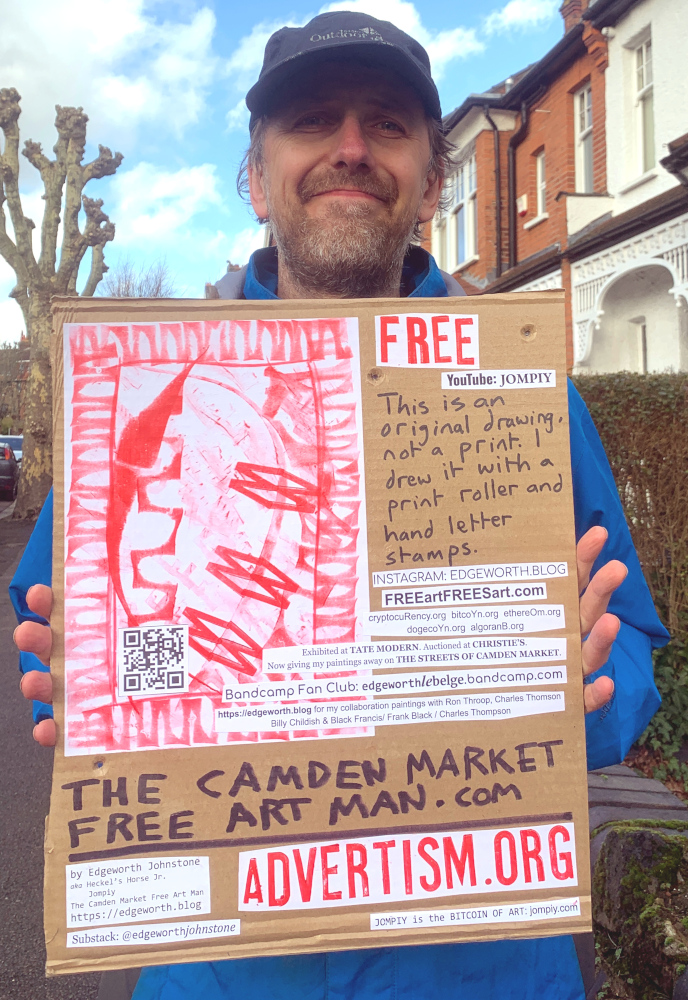 Outdoor
FREE
YouTube: JOMPIY
This is an
original drawing,
not a print. I
drew it with a
print roller and
hand letter
stamps.
INSTAGRAM: EDGEWORTH.BLOG
FREEartFREESart.com
cryptocuRency.org bitcoYn.org ethereOm.org
dogecoYn.org algoranB.org
Exhibited at TATE MODERN. Auctioned at CHRISTIE'S.
Now giving my paintings away on THE STREETS OF CAMDEN MARKET.
Bandcamp Fan Club: edgeworthlebelge.bandcamp.com
https://edgeworth.blog for my collaboration paintings with Ron Throop, Charles Thomson
Billy Childish & Black Francis/ Frank Black / Charles Thompson
THE CAMDEN MARKET
FREE ART MAN.com
by Edgeworth Johnstone
aka Heckel's Horse Jr.
Jompiy
The Camden Market Free Art Man
https://edgeworth.blog
Substack: @edgeworthjohnstone
ADVERTISM.ORG
JOMPIY is the BITCOIN OF ART: jompiy.com